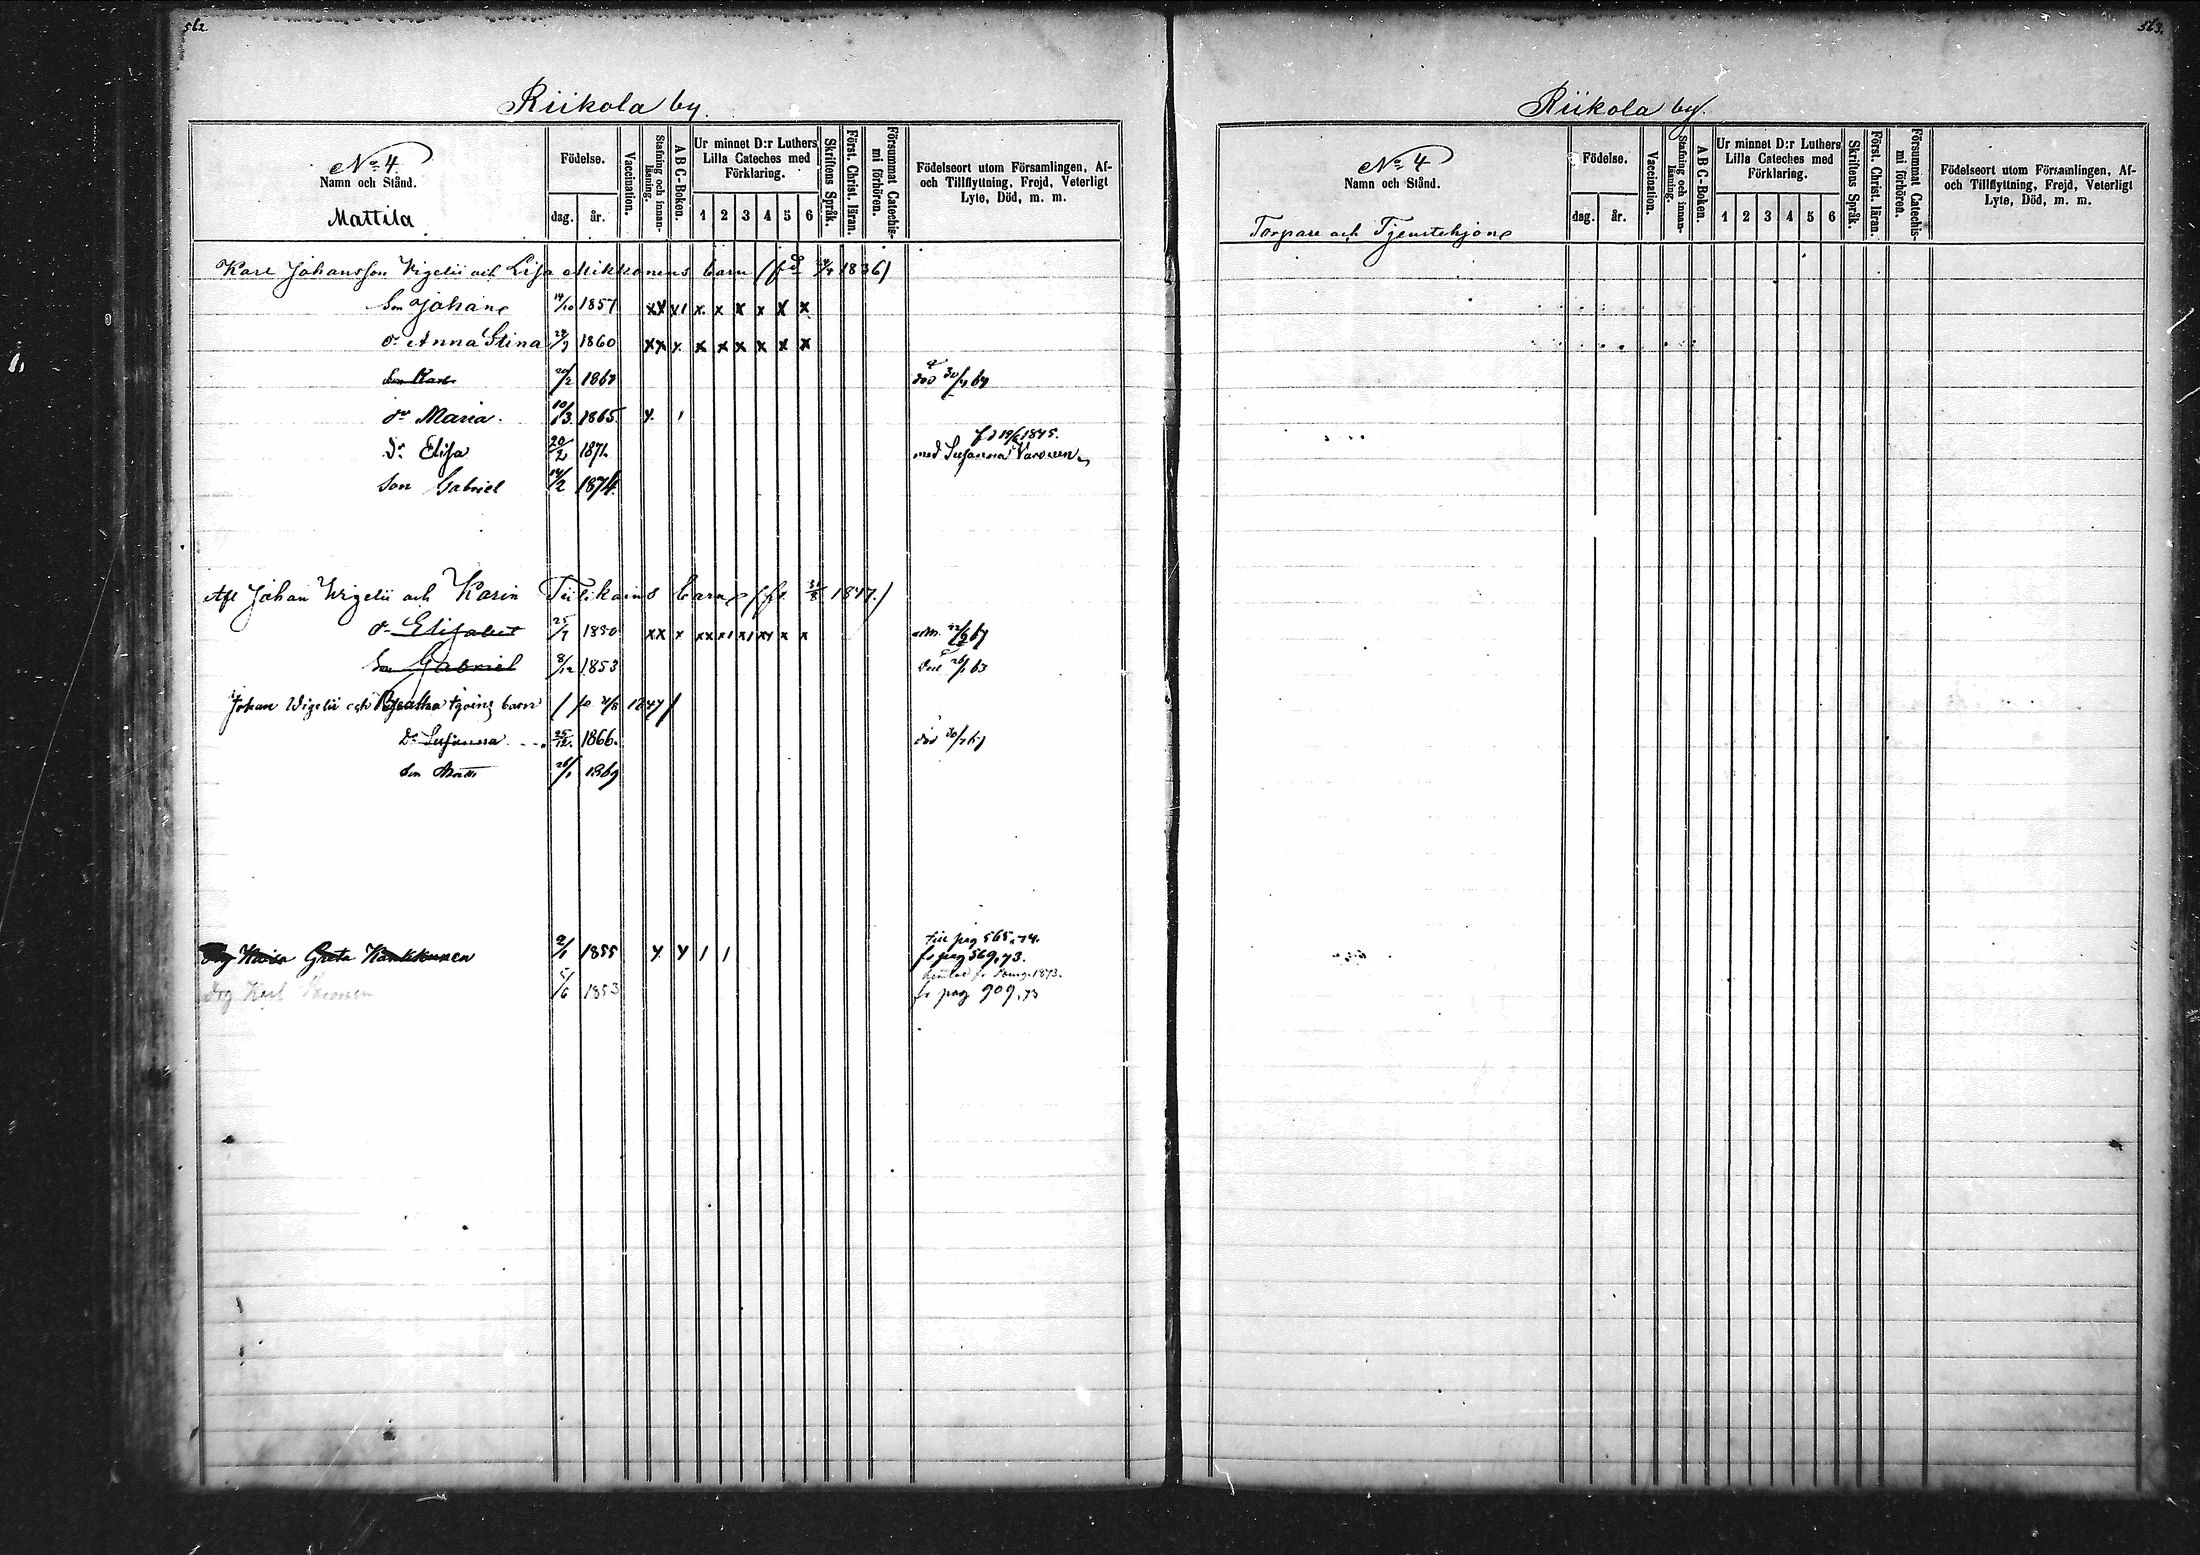 562
Riikola by.
No 4
Namn och Stånd.
Mattila
Födelse.
dag. år.
Vaccination.
Stafning och innanläsning.
A B C-Boken.
Ur minnet D:r Luthers Lilla Cateches med Förklaring.
1 2 3 4 5 6
Skriftens Språk.
Först. Christ. läran.
Försummat Catechismi förhören.
Födelseort utom Församlingen, Af- och Tillflyttning, Frejd, Veterligt Lyte, Död, m. m.
Karl Johansson Wigelii och Lisa Mikkonens barn (fd 4/4 1836)
Son Johan 14/10 1857 xx x1 x x x x x x
dr Anna Stina 1860 xx x x x x x x x
Son Karl 20/2 1867 död 30/4 67
dr Maria 10/3 1865 x 1
dr Elisa 20/2 1871 med Susanna Varonen fd 19/5 1845.
Son Gabriel 14/2 1874.
Afl Johan Wigelii och Karin Tiilikains barn (fd 1847.)
dr Elisabet 25/7 1850 xx x xx x1 x1 xx x x 22/9 67
Son Gabriel 8/12 1853 död 26/1 63
Johan Wigelii och Agatha barn (fd 4/8 1847)
Dr Susanna 25/12. 1866. död 30/7 67
Son Matts 26/1 1869
till pag 565, 74.
Drg Kaisa Greta Kaukkunen 2/1 1855 x x 1 1 fr pag 569, 73.
1873.
Drg Karl Varonen 5/6 1853 fr pag 909, 73
563.
Riikola by.
No 4
Namn och Stånd.
Torpare och Tjenstehjon
Födelse.
dag. år.
Vaccination.
Stafning och innanläsning.
A B C-Boken.
Ur minnet D:r Luthers Lilla Cateches med Förklaring.
1 2 3 4 5 6
Skriftens Språk.
Först. Christ. läran.
Försummat Catechismi förhören.
Födelseort utom Församlingen, Af- och Tillflyttning, Frejd, Veterligt Lyte, Död, m. m.